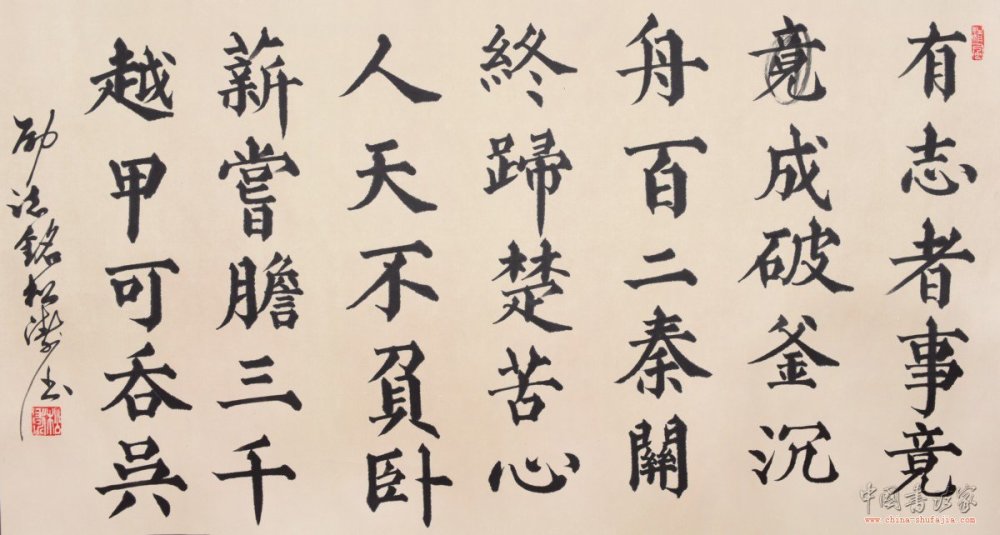 有志者事竟
竟成破釜沉
舟百二秦關
終歸楚苦心
人天不負卧
薪嘗膽三千
越甲可吞吳
励誌銘松濤书
中国書法家
www.china-shufajia.com